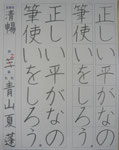 正しい平がなの
筆使いをしろう。
正しい平がなの
筆使いをしろう。
清暢 青山夏蓮